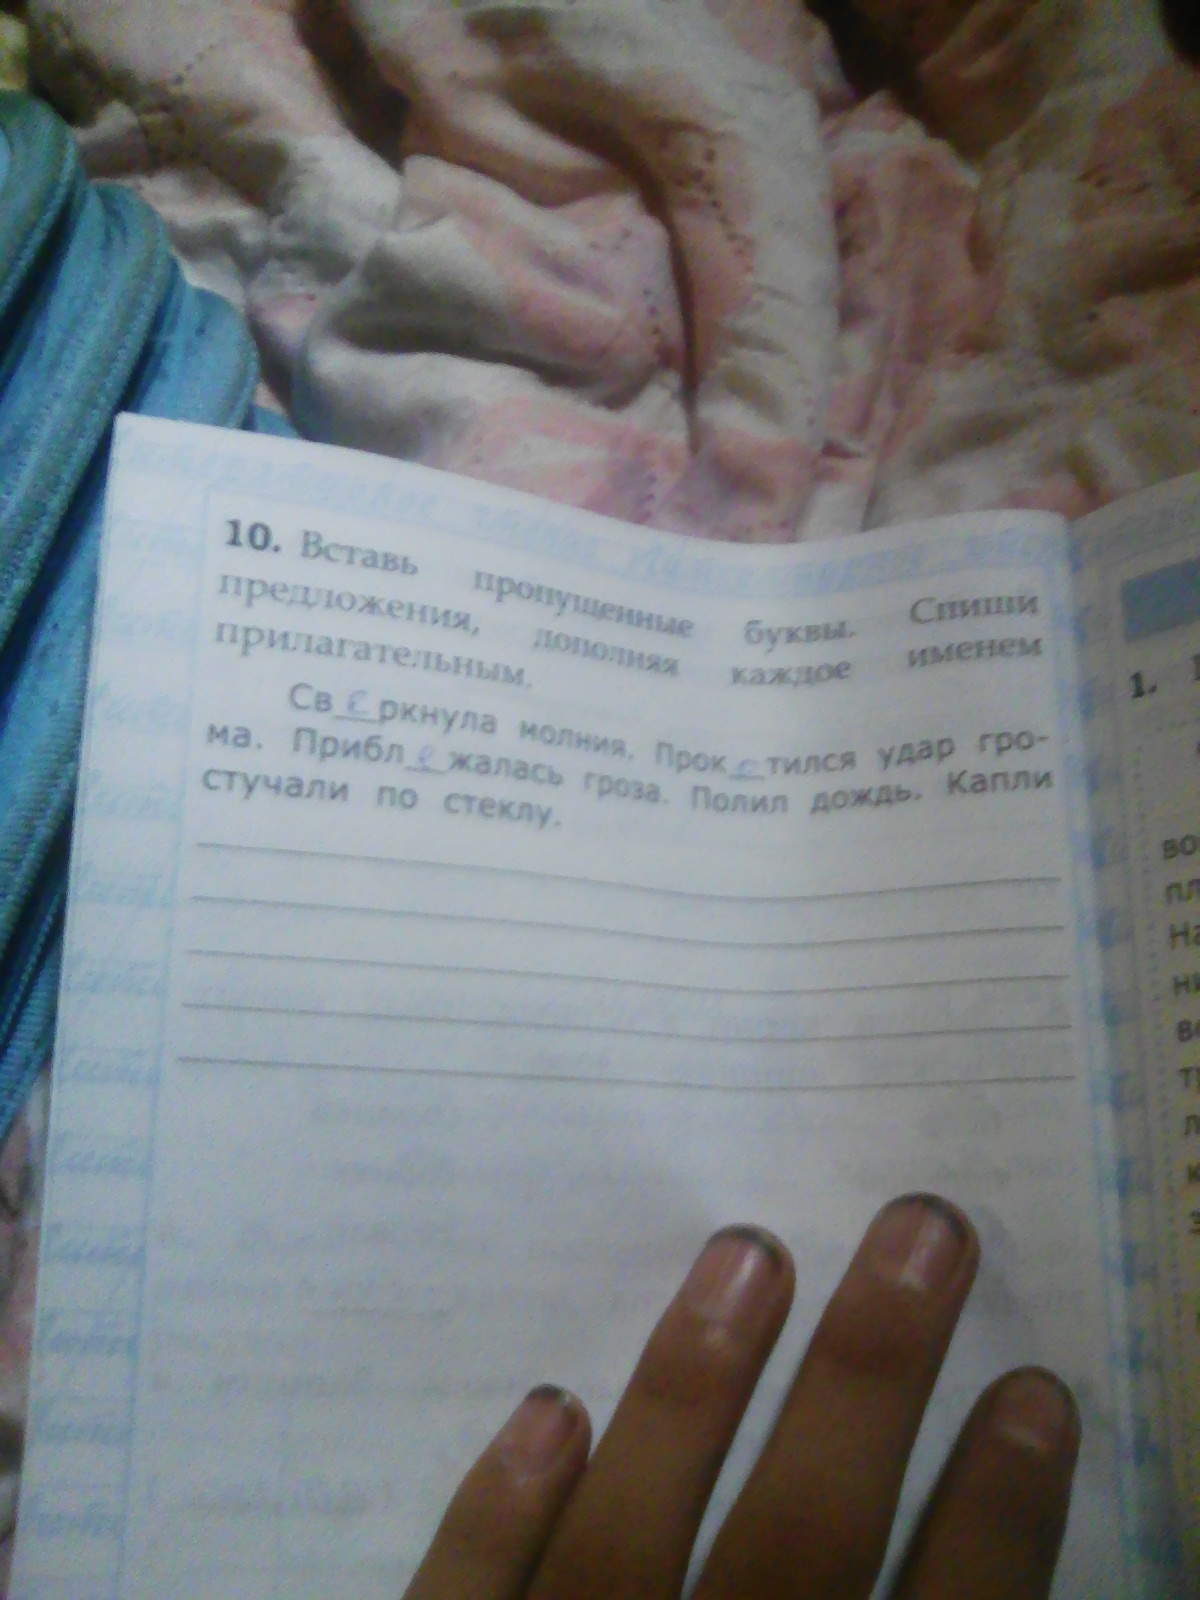 10. Вставь пропущенные буквы. Спиши
предложения, дополняя каждое именем
прилагательным.
Св е ркнула молния. Прок о тился удар гро-
ма. Прибл е жалась гроза. Полил дождь. Капли
стучали по стеклу.
1.
во
пл
На
ни